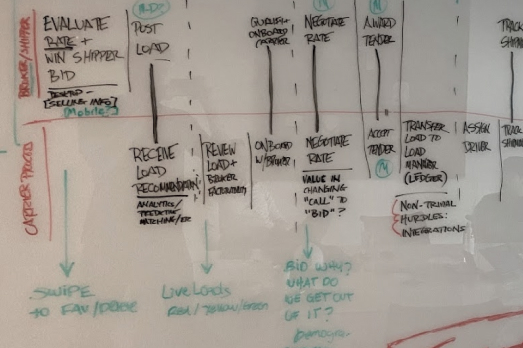 BROKER/SHIPPER
EVALUATE
RATE +
WIN SHIPPER
BID
[SELLING INFO]
[Mobile?]
POST
LOAD
QUALIFY +
ONBOARD
NEGOTIATE
RATE
AWARD
TENDER
TRACK
CARRIER PROCESS
RECEIVE
LOAD
RECOMMENDATION
ANALYTICS/
PREDICTIVE
MATCHING/ETC
REVIEW
LOAD +
BROKER
ONBOARD
W/BROKER
NEGOTIATE
RATE
VALUE IN
CHANGING
"CALL" TO
"BID"?
ACCEPT
TENDER
TRANSFER
LOAD TO
LOAD
MANAGER
(LEDGER)
NON-TRIVIAL
HURDLES:
INTEGRATIONS
ASSIGN
DRIVER
TRACK
SWIPE
TO FAV/
Live Loads
Red/Yellow/Green
BID WHY?
WHAT DO
WE GET OUT
OF IT?